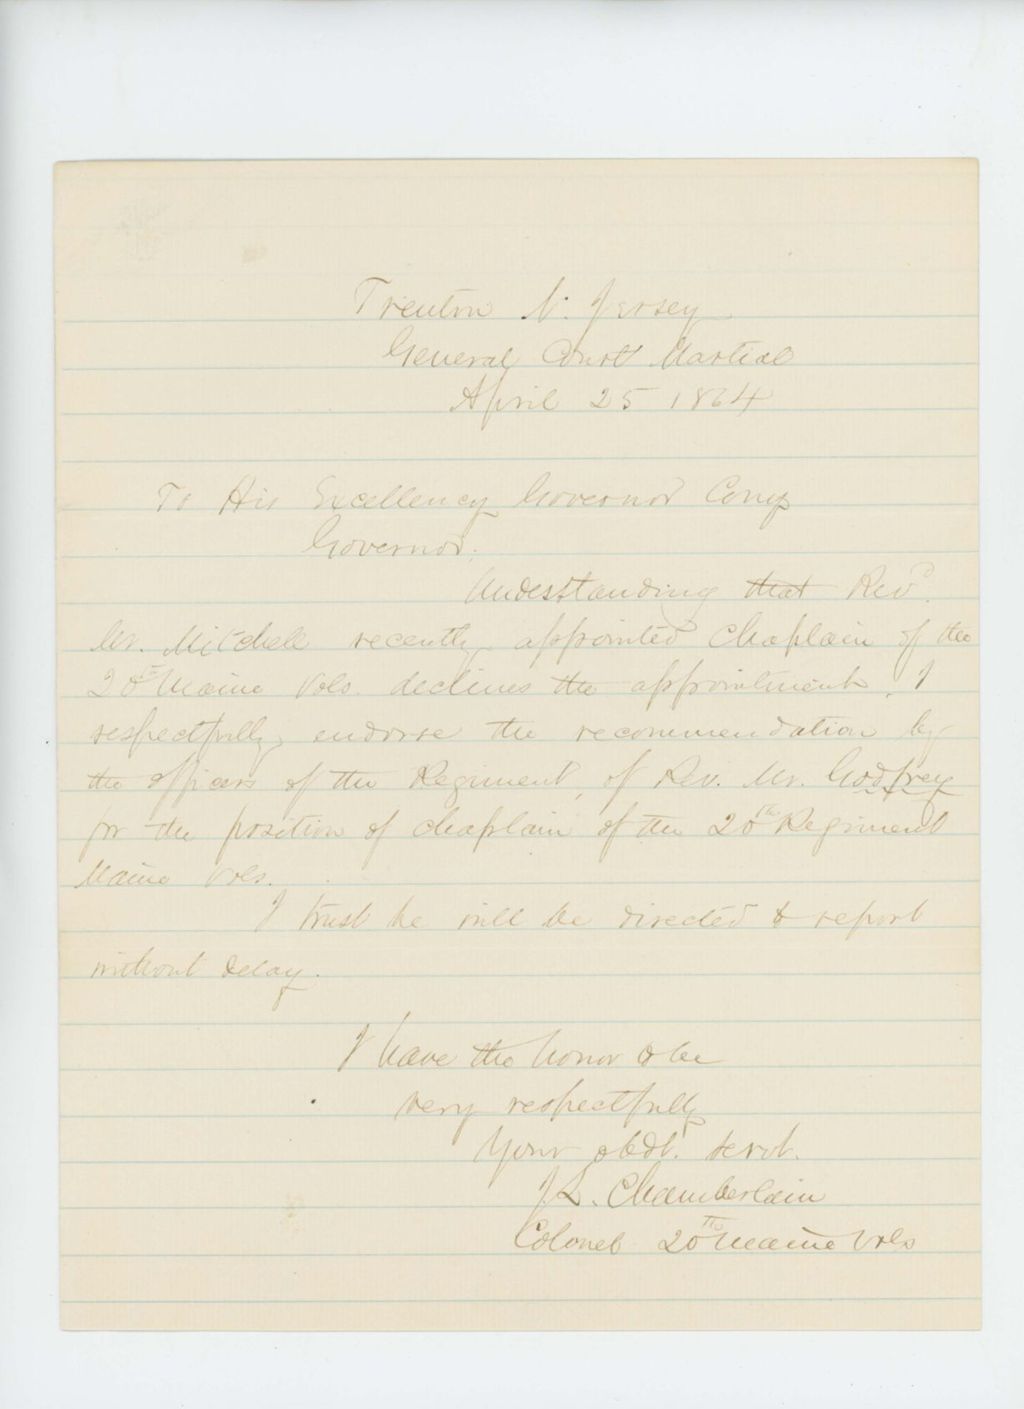 Trenton N. Jersey
General Court Martial
April 25 1864
To His Excellency Governor Cony
Governor,
Understanding that Revd.
Mr. Mitchell recently appointed Chaplain of the
20th Maine Vols. declines the appointment, I
respectfully endorse the recommendation by
the officers of the Regiment, of Rev. Mr. Godfrey
for the position of chaplain of the 20th Regiment
Maine Vols.
I trust he will be directed to report
without delay.
I have the honor to be
very respectfully
Your obdt. servt.
J L. Chamberlain
Colonel 20th Maine Vols